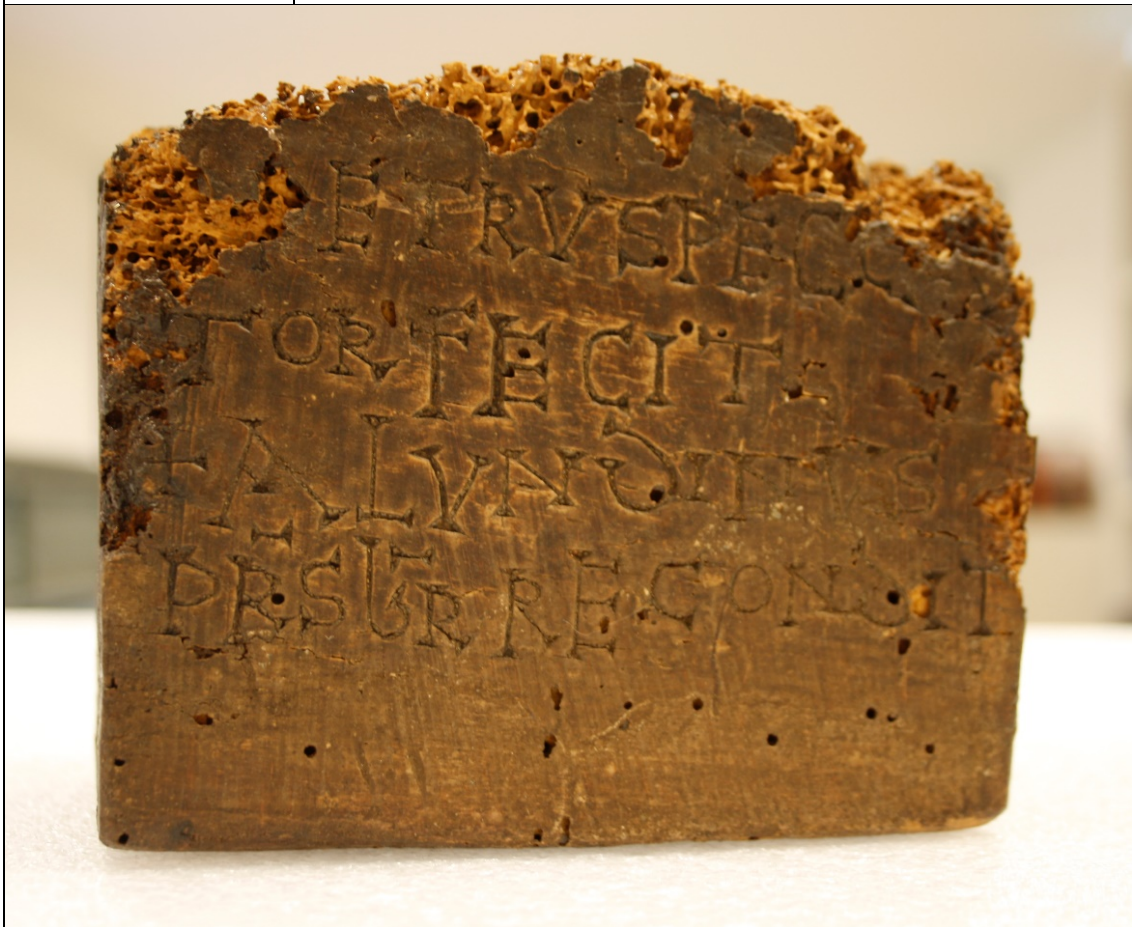 ETRVSPECC
TORFECIT
+ALVNDINVS
PRSBTR RECONDIT